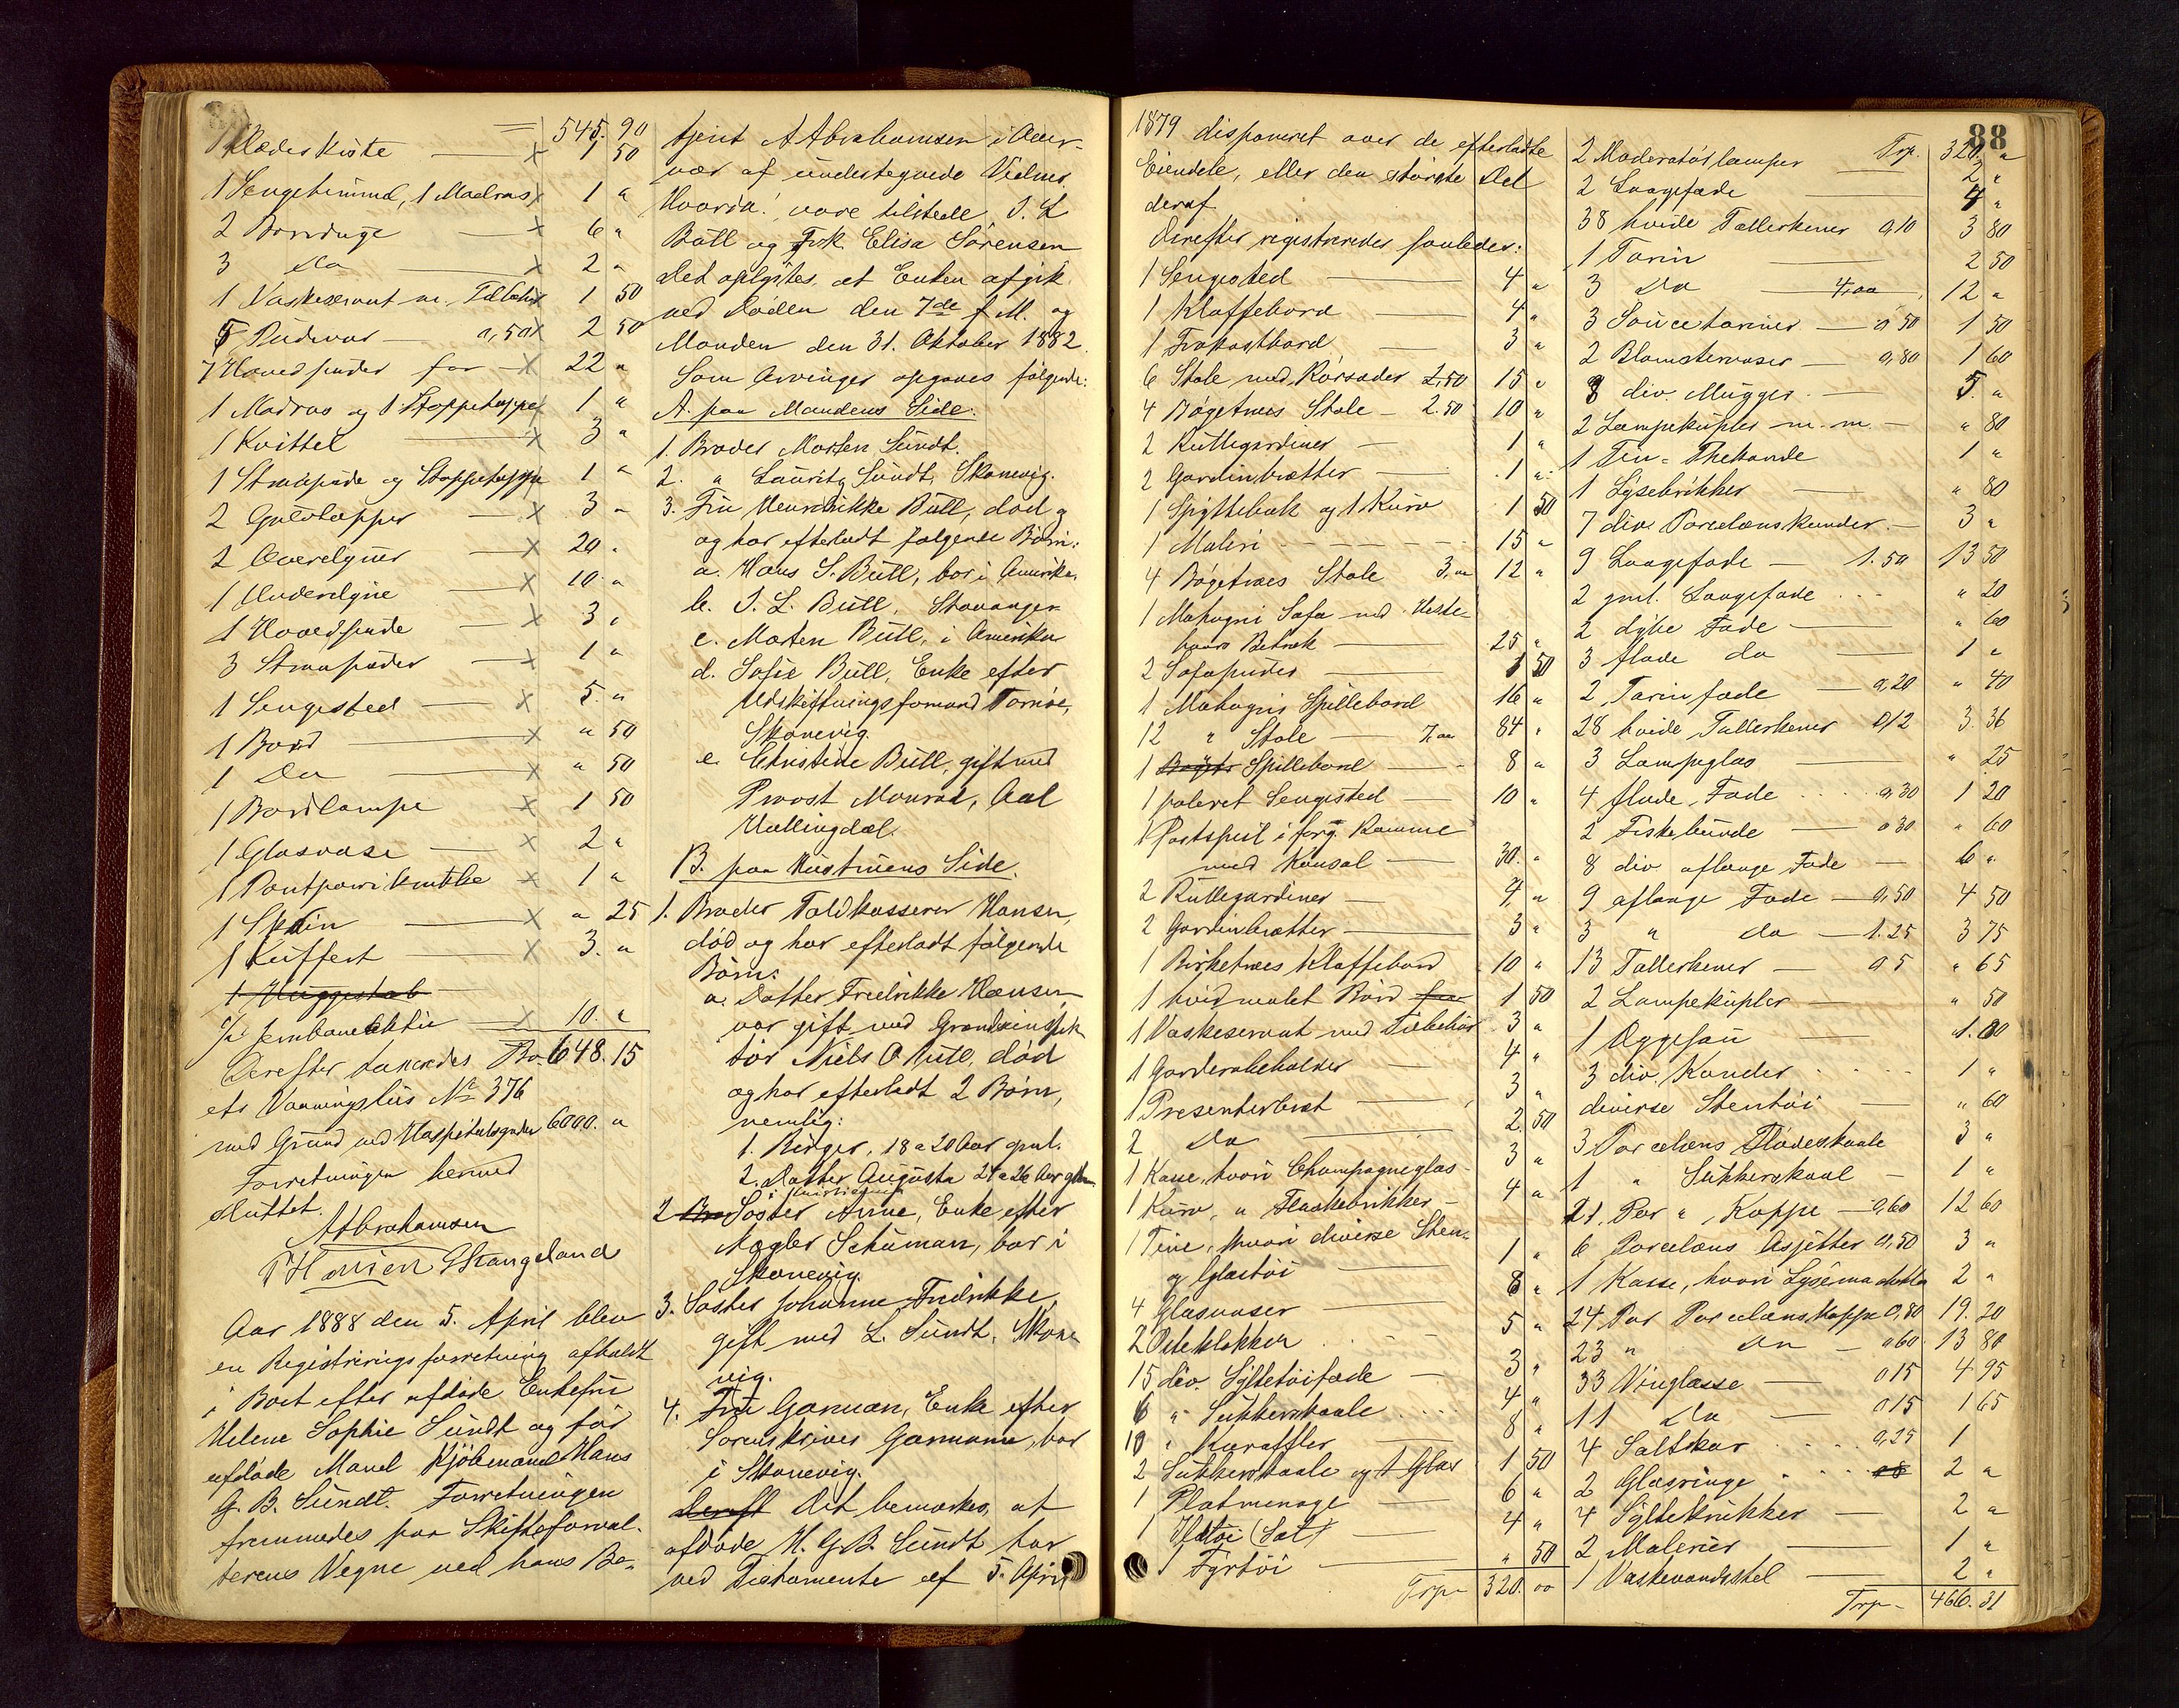 545. 90
1 Klædeskiste — x 1 50
1 Sengehimmel, 1 Madras x 1 "
2 Bonduge — x 6 "
3 Do — x 2 "
1 Vaskeservant m. Tilbehør 1 50
5 Pudevar — 0,50 x 2 50
7 Hovedpuder for — x 22 "
1 Madras og 1 Stoppeteppe x 1 "
1 Kvittel — x 3 "
1 Straapude og Stoppeteppe 1 "
2 Gulvtepper — x 3 "
2 Overdyner — x 20 "
1 Underdyne — x 10 "
1 Hovedpude — x 3 "
3 Straapuder — x 1 "
1 Sengested — x 5. "
1 Bord — x " 50
1 Do — x " 50
1 Bordlampe x 1 50
1 Glasvase — x 2 "
1 Pontpourikrukke x 1 "
1 Skrin — x " 25
1 Kuffert — x 3. "
1 Vuggeskab
1/2 Jernbaneaktie — x 10. "
Derefter taxeredes Bo. 648.15
ets Vaaningshus No 376
med Grund ved Hospitalsgaden 6000. "
Forretningen hermed
sluttet.
A Abrahamsen
P Hansen G Stangeland
Aar 1888 den 5. April blev
en Registreringsforretning afholdt
i Boet efter afdøde Enkefru
Helene Sophie Sundt og før
afdøde Mand Kjøbmand Hans
G. B. Sundt. Forretningen
fremmedes paa Skifteforval-
terens Vegne ved hans Be-
tjent A Abrahamsen i Over-
vær af undertegnede Vidner.
Hvorda! vare tilstede J. L
Bull og Frk. Elisa Sørensen
Det oplystes at Enken afgik
ved Døden den 7de f. M. og
Manden den 31. Oktober 1882.
Som Arvinger opgaves følgende:
A. paa Mandens Side.
1. Broder Morten Sundt.
2. " Lauritz Sundt, Skonevig.
3. Fru Henrikke Bull, død og
og har efterladt følgende Børn:
a. Hans S. Bull, bor i Amerika.
b. J. L. Bull, Stavanger
c. Morten Bull, i Amerika
d. Sofie Bull, Enke efter
Udskiftningsformand Tornøe,
Skonevig.
e. Christine Bull, gift med
Provst Monrad, Aal
Hallingdal.
B. paa Hustruens Side.
1. Broder Toldkasserer Hansen,
død og har efterladt følgende
Børn:
a. Datter Fredrikke Hansen
var gift med Grændseinspek
tør Niels O Bull, død
og har efterladt 2 Børn,
nemlig:
1. Birger, 18 a 20 Aar gml.
2. Datter Augusta 24 a 26 Aar glm.
2 Bro Søster Anne, Enke efter
Nagler Schuman, bor i
Skonevig.
3. Søster Johanne Fredrikke,
gift med L. Sundt. Skone
vig.
4. Fru Garman, Enke efter
Sorenskriver Garmann, bor
i Skonevig.
Dereft Det bemærkes, at
afdøde H. G. B. Sundt har
ved Testamente af 5. April
1879 disponeret over de efterladte
Eiendele, eller den største Del
deraf
Derefter registreredes saaledes:
1 Sengested — 4 "
1 Klaffebord — 4 "
1 Frokostbord — 3 "
6 Stole med Rørsæder 2,50 15 "
4 Bøgetræes Stole — 2.50 10 "
2 Rullegardiner — 1 "
2 Gardinbrætter — 1 "
1 Spyttebak og 1 Kurv 1 50
1 Maleri — 15 "
4 Bøgetræes Stole 3,00 12 "
1 Mahogni Sofa med Heste-
haars Betræk — 25 "
2 Sofapuder — 1 50
1 Mahogni Spillebord 16 "
12 " Stole — 7,00 84 "
1 Bøgetr Spillebord — 8 "
1 poleret Sengested — 10 "
1 Postspeil i forg. Ramme
med Konsol — 30. "
2 Rullegardiner — 4 "
2 Gardinbrætter — 3 "
1 Birketræes Klaffebord 10 "
1 hvidmalet Bord for 1 50
1 Vaskeservant med Tilbehør 3 "
1 Garderobeholder — 4 "
1 Presenterbret — 3 "
2 Do — 2 50
1 Kasse, hvori Champagneglas 3 "
1 Kurv, " Flaskebrikker — 4 "
1 Tine, hvori diverse Sten-
og Glastøi — 1 "
4 Glasvaser — 8 "
2 Osteklokker 5 "
15 div. Syltetøifade — 3 "
6 " Sukkerskaale 4 "
10 " Karafler — 8 "
2 Sukkerskaale og 1 Glas 1 50
1 Platmenage — 6 "
1 Ildtøi (Sæt) — 4 "
1 Fyrtøi — " 50
Trp — 320. 00
88
2 Moderatørlamper Trp. 320, "
2 "
2 Laagefade — 4 "
38 hvide Tallerkener 0,10 3 80
1 Tarin — 2 50
3 Do — 4,00 12 "
3 Saucetariner — 0 50 1 50
2 Blomstervaser — 0,80 1 60
8 div. Mugger — 5. "
2 Lampekupler m. m — " 80
1 Tin-Thekande 1 "
1 Lysebrikker — " 80
7 div. Porcelænskander — 3 "
9 Laagefade — 1.50 13 50
2 gml. Laagefade " 20
2 dybe Fade — " 60
3 flade do — 1 "
2 Tarinfade — 0,20 " 40
28 hvide Tallerkener 0,12 3. 36
3 Lampeglas — " 25
4 flade Fade 0,30 1 20
2 Fiskebunde — 0 30 " 60
8 div aflange Fade — 6 "
9 aflange Fade — 0,50 4 50
3 " do — 1.25 3 75
13 Tallerkener — 0 5 " 65
2 Lampekupler — " 50
1 Æggesau —
3 div. Kander 1 "
diverse Stentøi — " 60
3 Porcelæns Flødeskaale 3 "
1 " Sukkerskaal — 1 "
21 Par " Koppe — 0,60 12 60
6 Porcelæns Asjetter 0,50 3 "
1 Kasse, hvori Lysemanchetter 2 "
24 Par Porcelænskoppe 0,80 19. 20
23 " do — 0 60 13 80
33 Vinglasse — 0 15 4 95
11 Do — 0 15 1 65
4 Saltkar 0,25 1
2 Glasringe 2 "
4 Syltekrukker — 2 "
2 Malerier — 1 "
1 Vaskevandsstel — 2 "
Trp — 466. 31